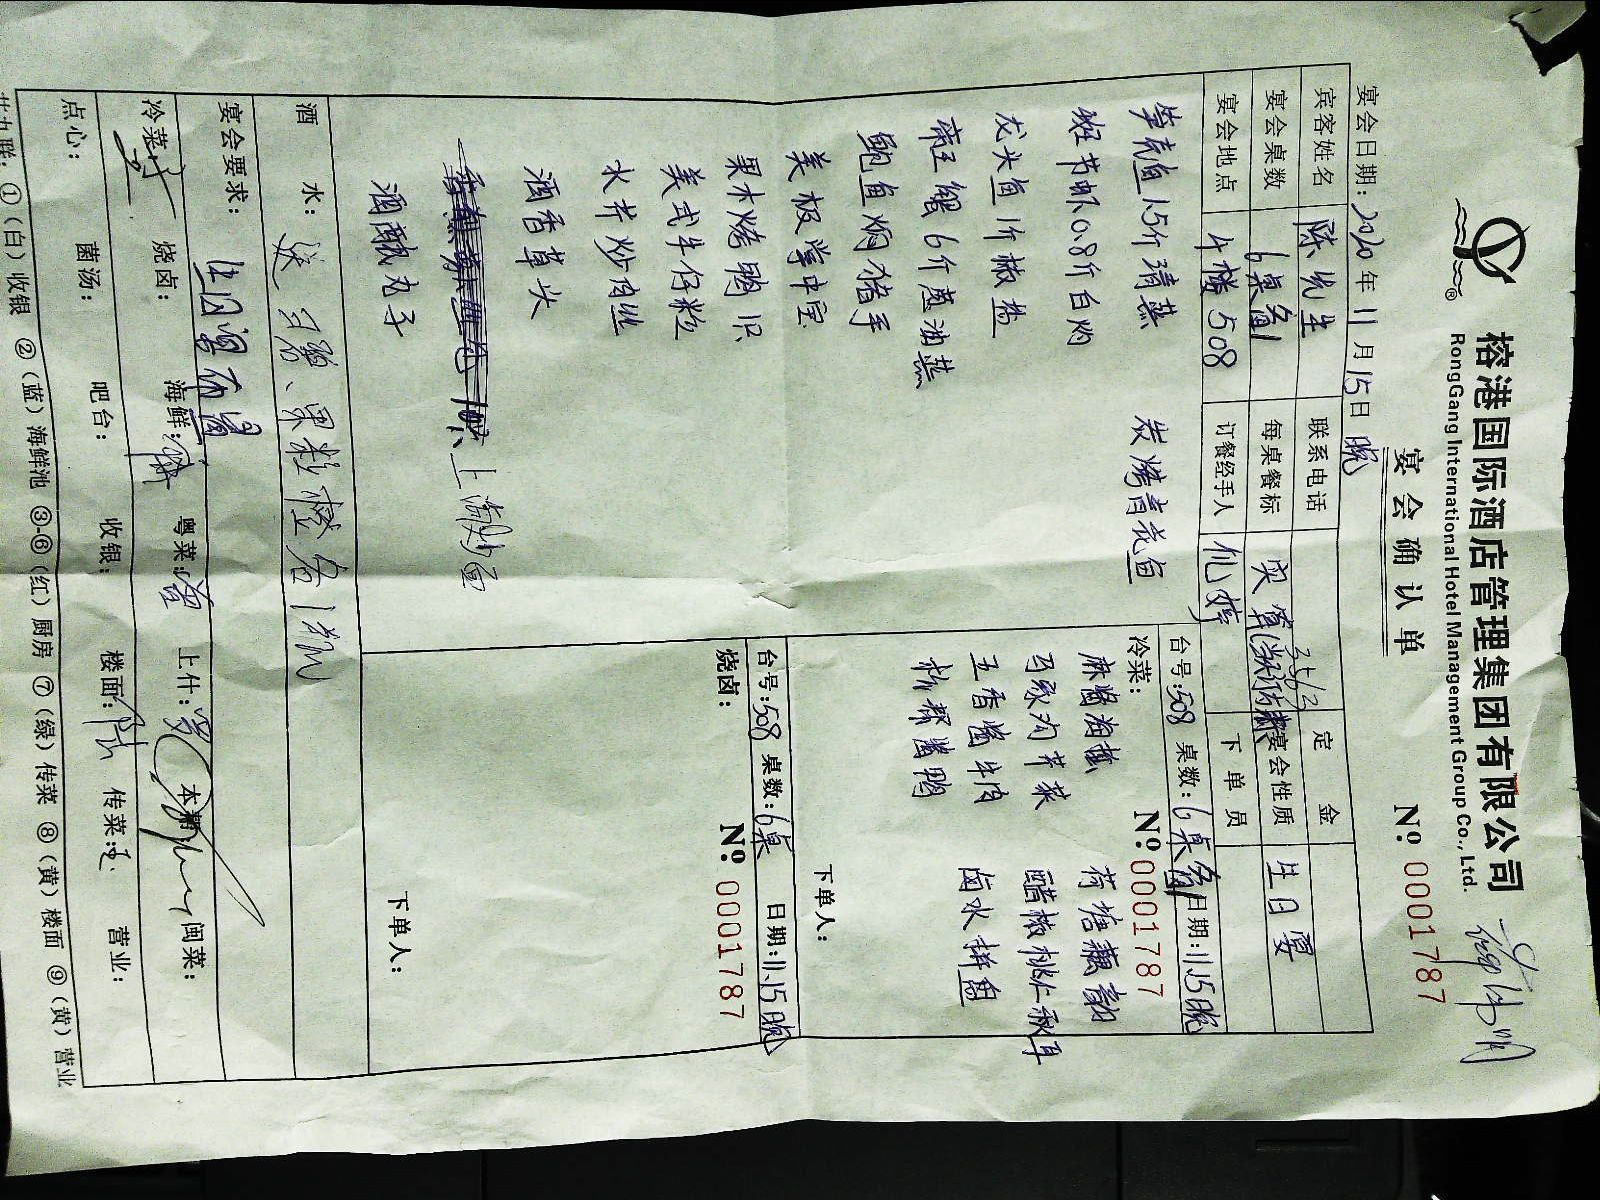 榕港国际酒店管理集团有限公司
RongGang International Hotel Management Group Co., Ltd.
宴会确认单
№: 0001787
宴会日期:2020年11月15日晚
宾客姓名 陈先生 联系电话 定金
宴会桌数 6桌备1 每桌餐标 实算 宴会性质 生日宴
宴会地点 4楼508 订餐经手人 下单员
笋壳鱼1.5斤清蒸 炭烤青花鱼
斑节虾0.8斤白灼
龙头鱼1斤椒盐
帝王蟹6斤葱油蒸
鲍鱼焖猪手
美极掌中宝
果木烧鸭1只
美式牛仔粒
水芹炒肉丝
酒香草头
上海炒面
酒酿丸子
台号:508 桌数:6桌备1 日期:11.15晚
冷菜: №: 0001787
麻酱海蜇 荷塘藕韵
马家沟芹菜 醋椒桃仁秋耳
五香酱牛肉 卤水拼盘
杭帮酱鸭
下单人:
台号:508 桌数:6桌 日期:11.15晚
烧卤: №: 0001787
下单人:
酒水: 送 可乐、果粒橙各1瓶
宴会要求:
冷菜: 烧卤: 海鲜: 粤菜: 上什: 本帮: 闽菜:
点心: 菌汤: 吧台: 收银: 楼面: 传菜: 营业:
共九联:①(白)收银 ②(蓝)海鲜池 ③-⑥(红)厨房 ⑦(绿)传菜 ⑧(黄)楼面 ⑨(黄)营业